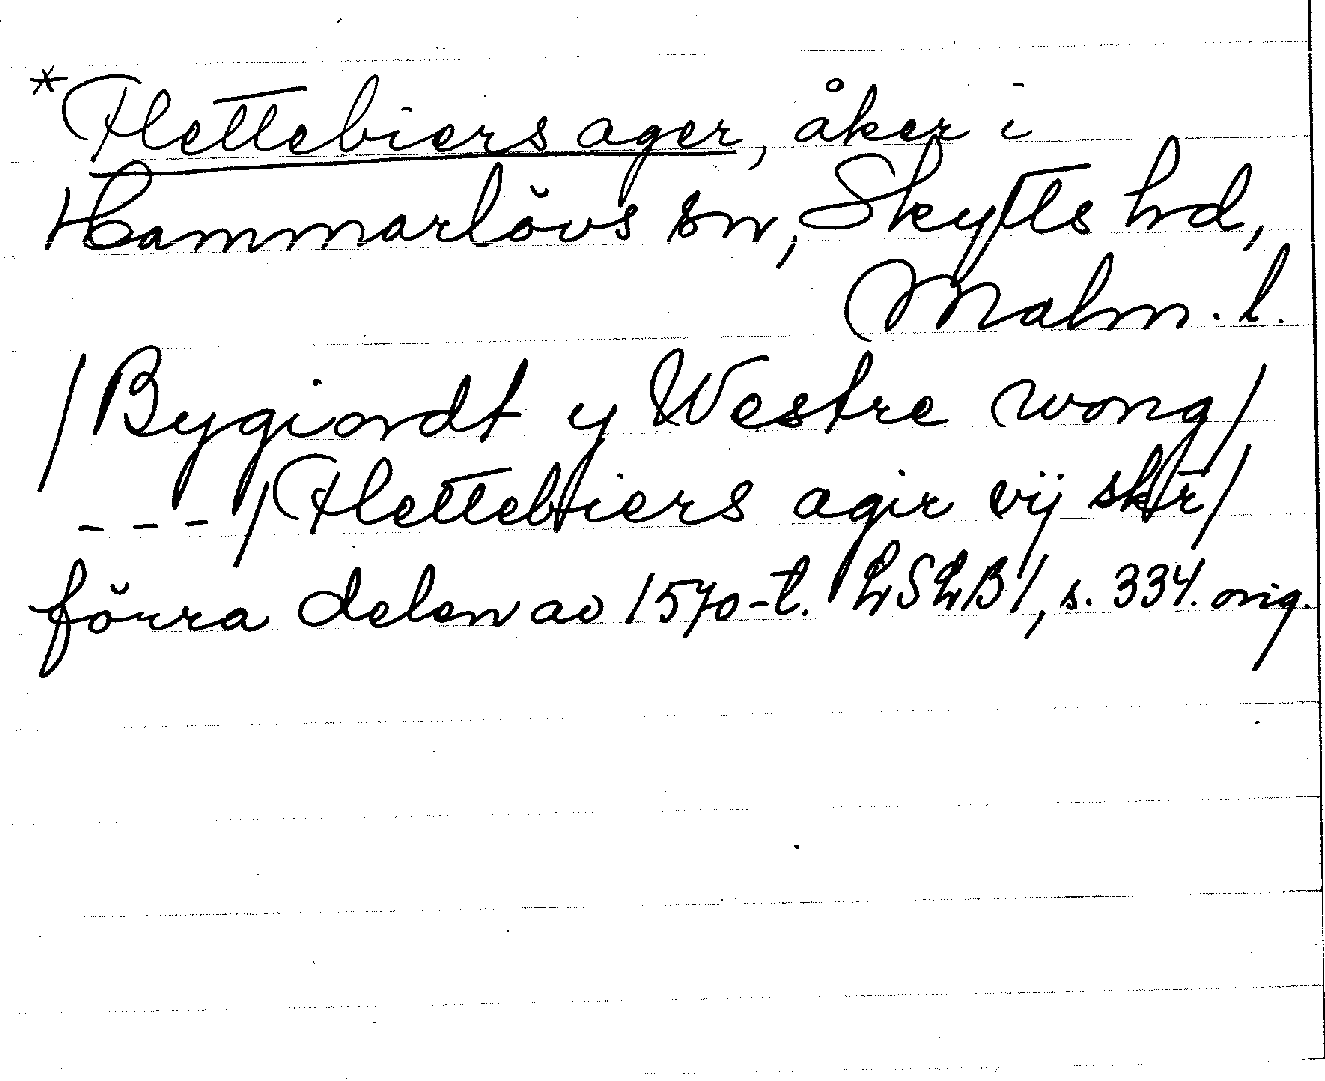 *Flettebiers ager, åker i
Hammarlövs sn, Skytts hd,
Malm. l.
/Bygiordt y Westre wong/
---/Flettebiers agir vij skr/
förra delen av 1570-t. LSLB1, s. 334. orig.